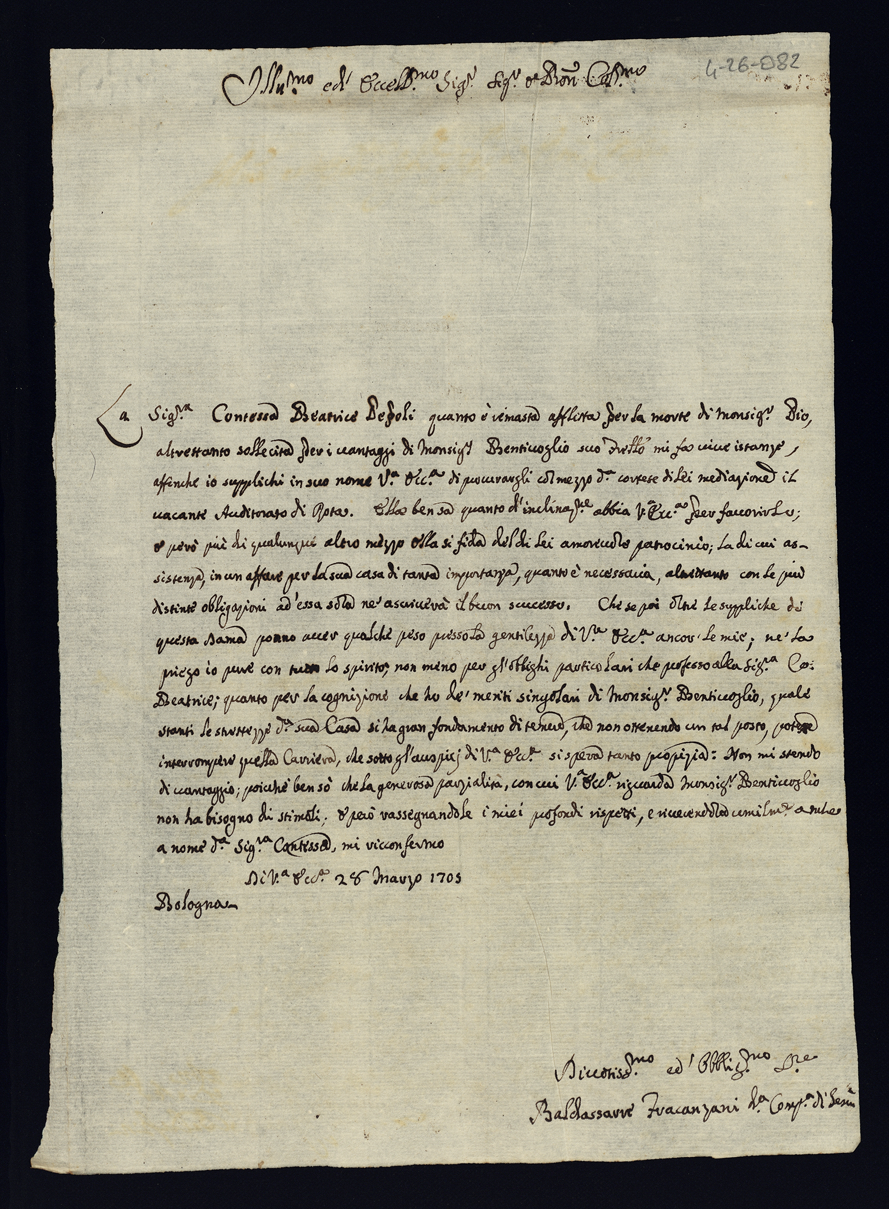 4-26-082
Illu.mo ed' Eccell.mo Sig.r Sig.r e Pron Col.mo
La Sig.ra Contessa Beatrice Pepoli quanto è rimasta afflitta per la morte di Monsig.r Pio,
altrettanto sollecita per i vantaggi di Monsig.r Bentivoglio suo frello mi fa vive istanze,
affinche io supplichi in suo nome V.a Ecc.a di procurargli col mezzo d.a cortese di lei mediazione il
vacante Auditorato di Rota. Ella ben sa quanto d'inclinaz.ne abbia V.a Ecc.a per favorirlo;
e però più di qualunque altro mezzo ella si fida del di lei amorevole patrocinio; la di cui as-
sistenza, in un affare per la sua casa di tanta importanza, quanto è necessaria, altretanto con le più
distinte obligazioni ad' essa sola ne ascriverà il buon successo. Che se poi oltre le suppliche di
questa Dama ponno aver qualche peso presso la gentilezza di V.a Ecc.a ancor le mie; ne la
priego io pure con tutto lo spirito, non meno per gl'obblighi particolari che professo alla Sig.a Co:
Beatrice; quanto per la cognizione che ho de' meriti singolari di Monsig.r Bentivoglio, quale
stanti le strettezze d.a sua Casa si ha gran fondamento di temere, che non ottenendo un tal posto, potesse
interrompere quella Carriera, che sotto gl'auspicj di V.a Ecc.a si spera tanto propizia: Non mi stendo
di vantaggio; poiche ben sò che la generosa parzialità, con cui V.a Ecc.a riguarda Monsig.r Bentivoglio
non ha bisogno di stimoli; e però rassegnandole i miei profondi rispetti, e riverendola umilm.e anche
a nome d.a Sig.ra Contessa, mi riconfermo
Di V.a Ecc.a 28 Marzo 1705
Bologna
Divotiss.mo ed' Obblig.mo S.re
Baldassarre Fracanzani d.a Comp.a di Gesù